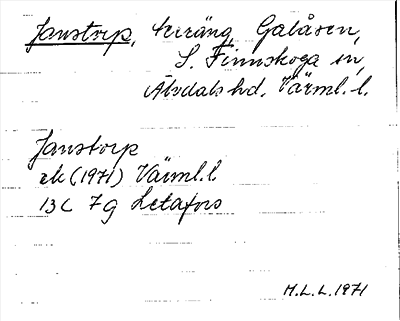 Janstorp, terräng, Galåsen,
S. Finnskoga sn,
Älvdals hd, Värml. l.
Janstorp
ek (1971) Värml. l
13C 7g Letafors
M.L.L. 1971